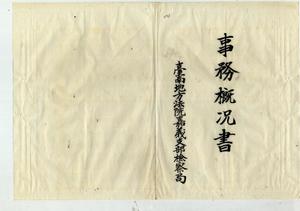 事務概况書
臺南地方法院嘉義支部檢察局